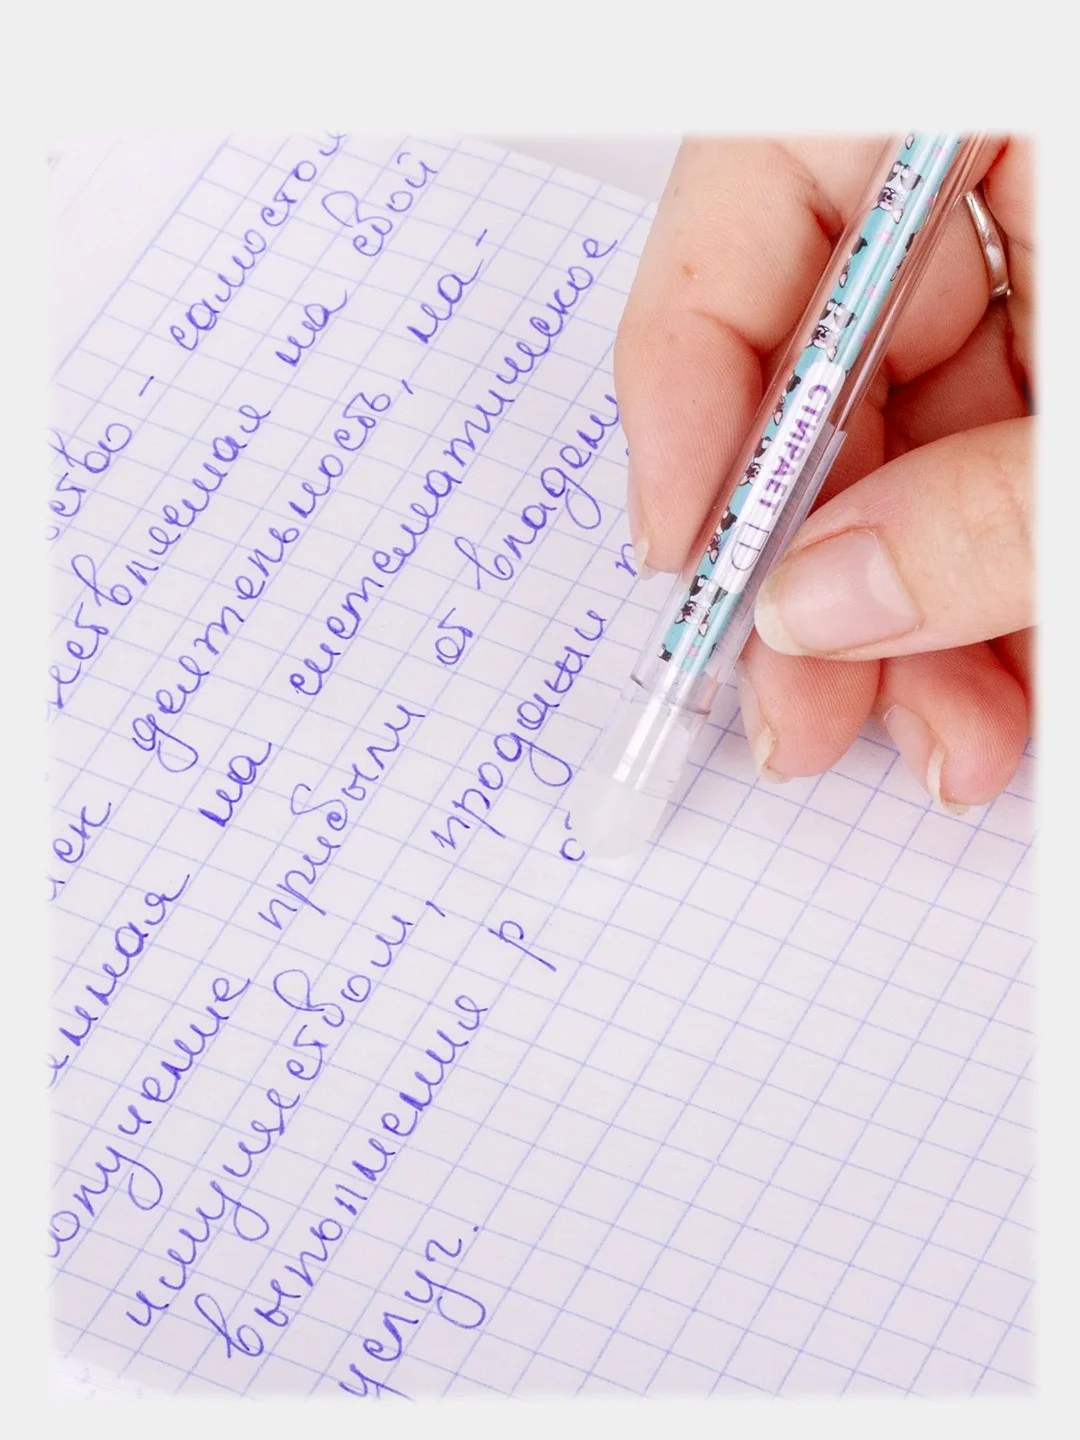 ство - самосто
ествляемая на свой
иск деятельность, на-
енная на систематическое
олучение прибыли от владен
имуществом, продажи п
выполнения р
услуг.
СТИРАЕТ